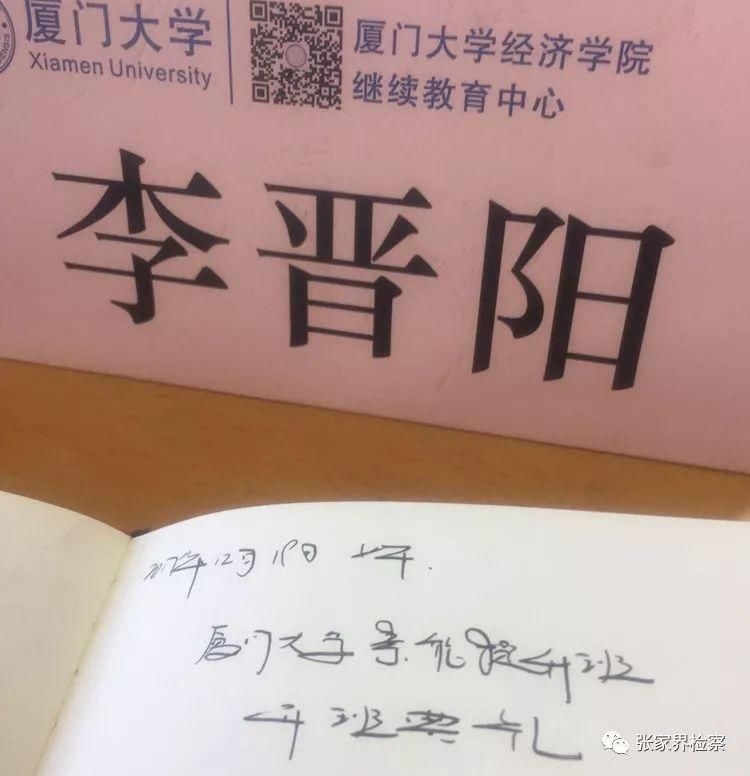 厦门大学
Xiamen University
厦门大学经济学院
继续教育中心
李晋阳
上午.
厦门大学素能提升班
开班典礼
张家界检察